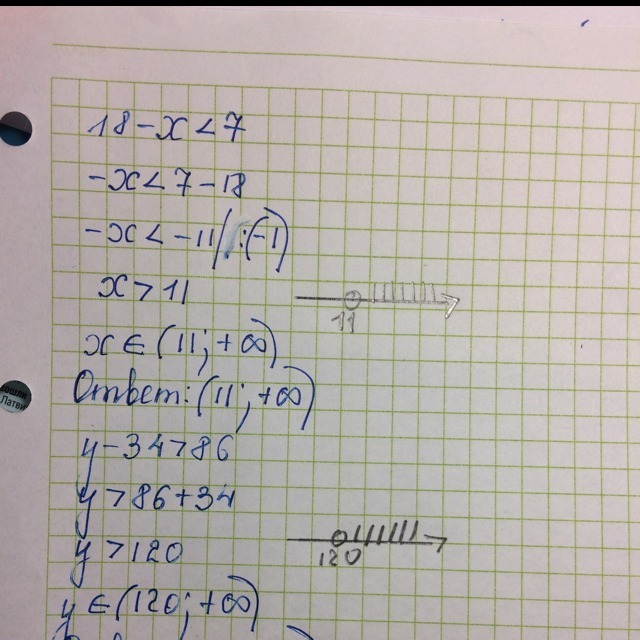 18 - x < 7
-x < 7 - 18
-x < -11 / : (-1)
x > 11
11
x ∈ (11; +∞)
Ответ: (11; +∞)
y - 34 > 86
y > 86 + 34
y > 120
120
y ∈ (120; +∞)
Латви